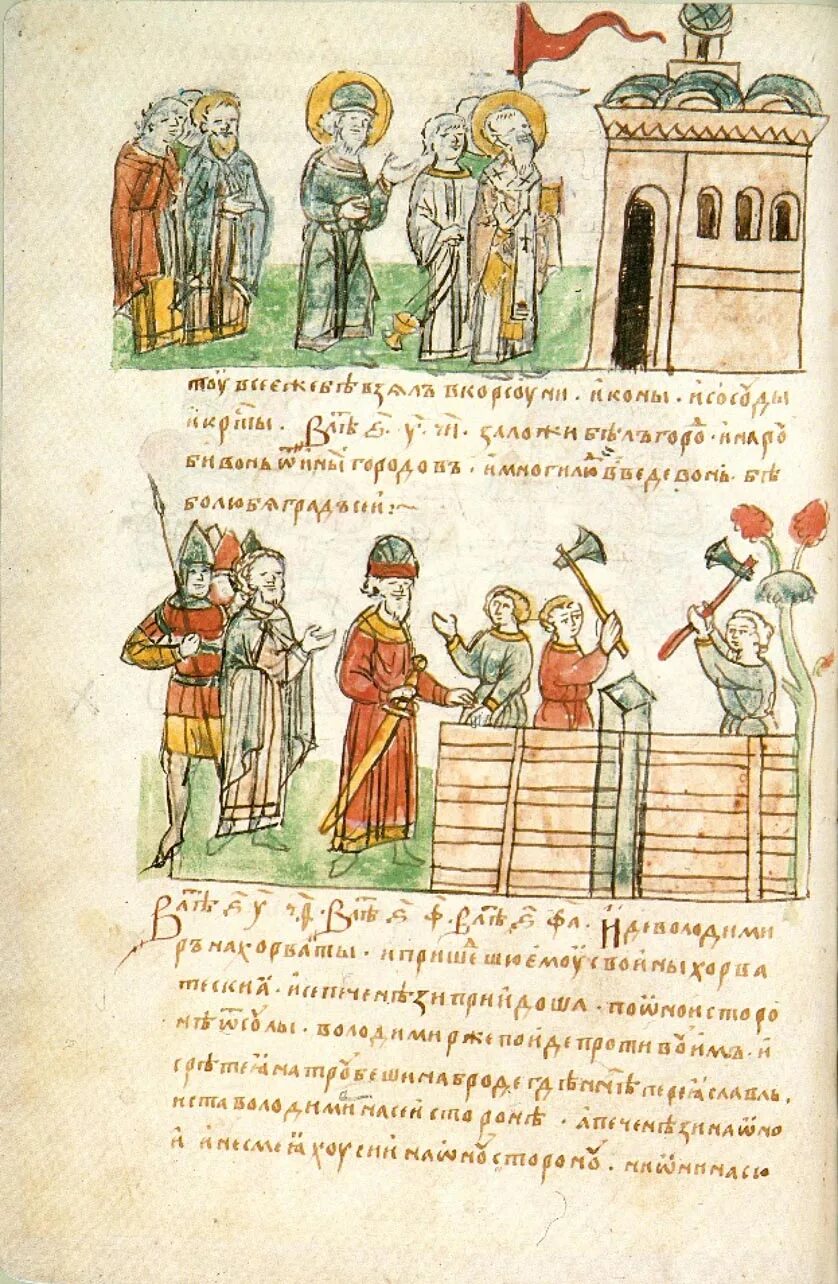 тоу всеежебѣ взѧлъ вкорсоуни · иконы · исосоуды
икрⷭ҇ты · Влѣⷮ ҂ѕ҃ · у҃ · ч҃и · заложи бѣлъгороⷣ · инаро
бивонь ѿ инъıⷯ городовъ · имногилюⷣ введевонь · бѣ
болюбѧ градъсеи :~
Влѣⷮ ҂ѕ҃ у҃ ч҃ѳ · Влѣⷮ ҂ѕ҃ ф҃ · Влѣⷮ ҂ѕ҃ ф҃а · Иде володими
ръ нахорваты · ипришеⷣшю емоу свойны хорва
тескиꙗ · исе печенѣзи приидоша · поѡнои сторо
нѣ ѿ соулы · володимирже поиде противоу имъ · и
срѣте ꙗ на троубеши наброде гдѣ нн҃ѣ переꙗславль ·
иста володими насеи сторонѣ · а печенѣзи наѡно
и и несмеꙗхоу сии наѡноу стороноу · ни ѡни насю